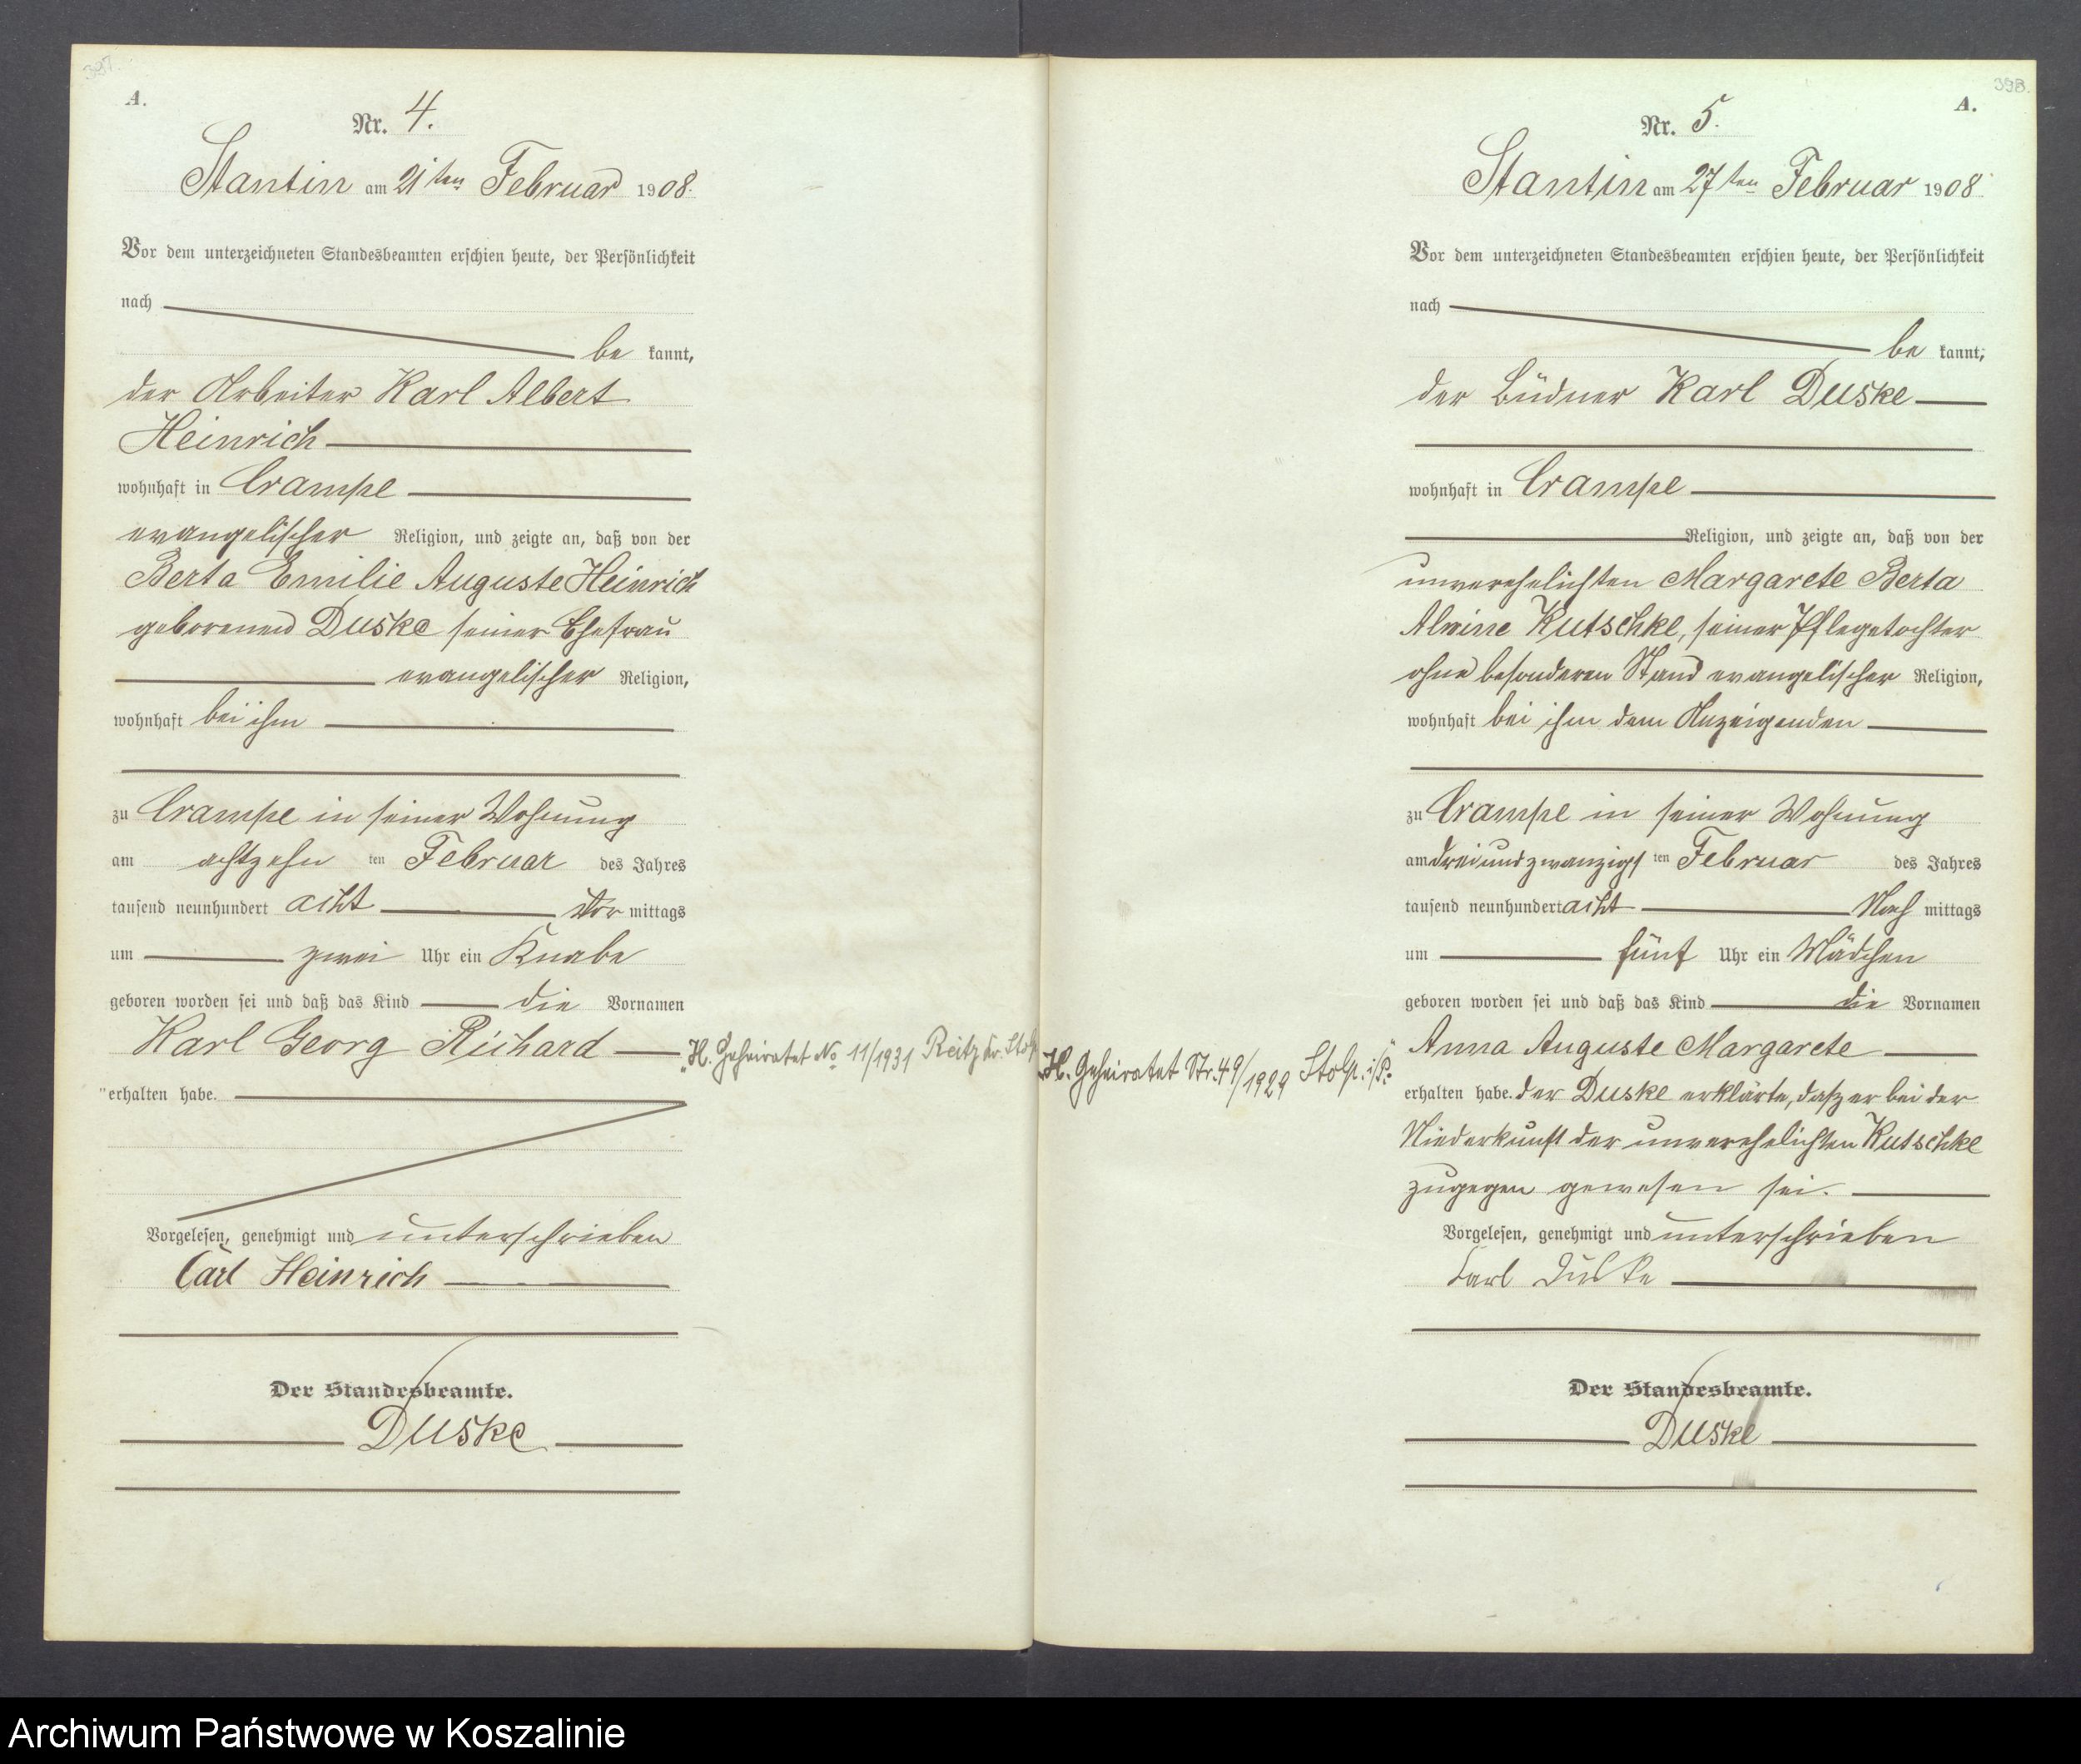 397.
A.
Nr. 4.
Stantin am 21ten Februar 1908.
Vor dem unterzeichneten Standesbeamten erschien heute, der Persönlichkeit
nach
be kannt,
der Arbeiter Karl Albert
Heinrich
wohnhaft in Crampe
evangelischer Religion, und zeigte an, daß von der
Berta Emilie Auguste Heinrich
geborenen Duske seiner Ehefrau
evangelischer Religion,
wohnhaft bei ihm
zu Crampe in seiner Wohnung
am achtzehn ten Februar des Jahres
tausend neunhundert acht Vor mittags
um zwei Uhr ein Knabe
geboren worden sei und daß das Kind die Vornamen
Karl Georg Richard
erhalten habe.
"H. Geheiratet No 11/1931 Reitz Kr. Stolp
Vorgelesen, genehmigt und unterschrieben
Carl Heinrich
Der Standesbeamte.
Duske
398.
A.
Nr. 5.
Stantin am 27ten Februar 1908
Vor dem unterzeichneten Standesbeamten erschien heute, der Persönlichkeit
nach
be kannt,
der Büdner Karl Duske
wohnhaft in Crampe
Religion, und zeigte an, daß von der
unverehelichten Margarete Berta
Alwine Kutschke, seiner Pflegetochter
ohne besonderen Stand evangelischer Religion,
wohnhaft bei ihm dem Anzeigenden
zu Crampe in seiner Wohnung
am dreiundzwanzigs ten Februar des Jahres
tausend neunhundert acht Nach mittags
um fünf Uhr ein Mädchen
geboren worden sei und daß das Kind die Vornamen
Anna Auguste Margarete
"H. Geheiratet Str. 49/1929 Stolp. i/P."
erhalten habe. der Duske erklärte, daß er bei der
Niederkunft der unverehelichten Kutschke
zugegen gewesen sei.
Vorgelesen, genehmigt und unterschrieben
Karl Duske
Der Standesbeamte.
Duske
Archiwum Państwowe w Koszalinie